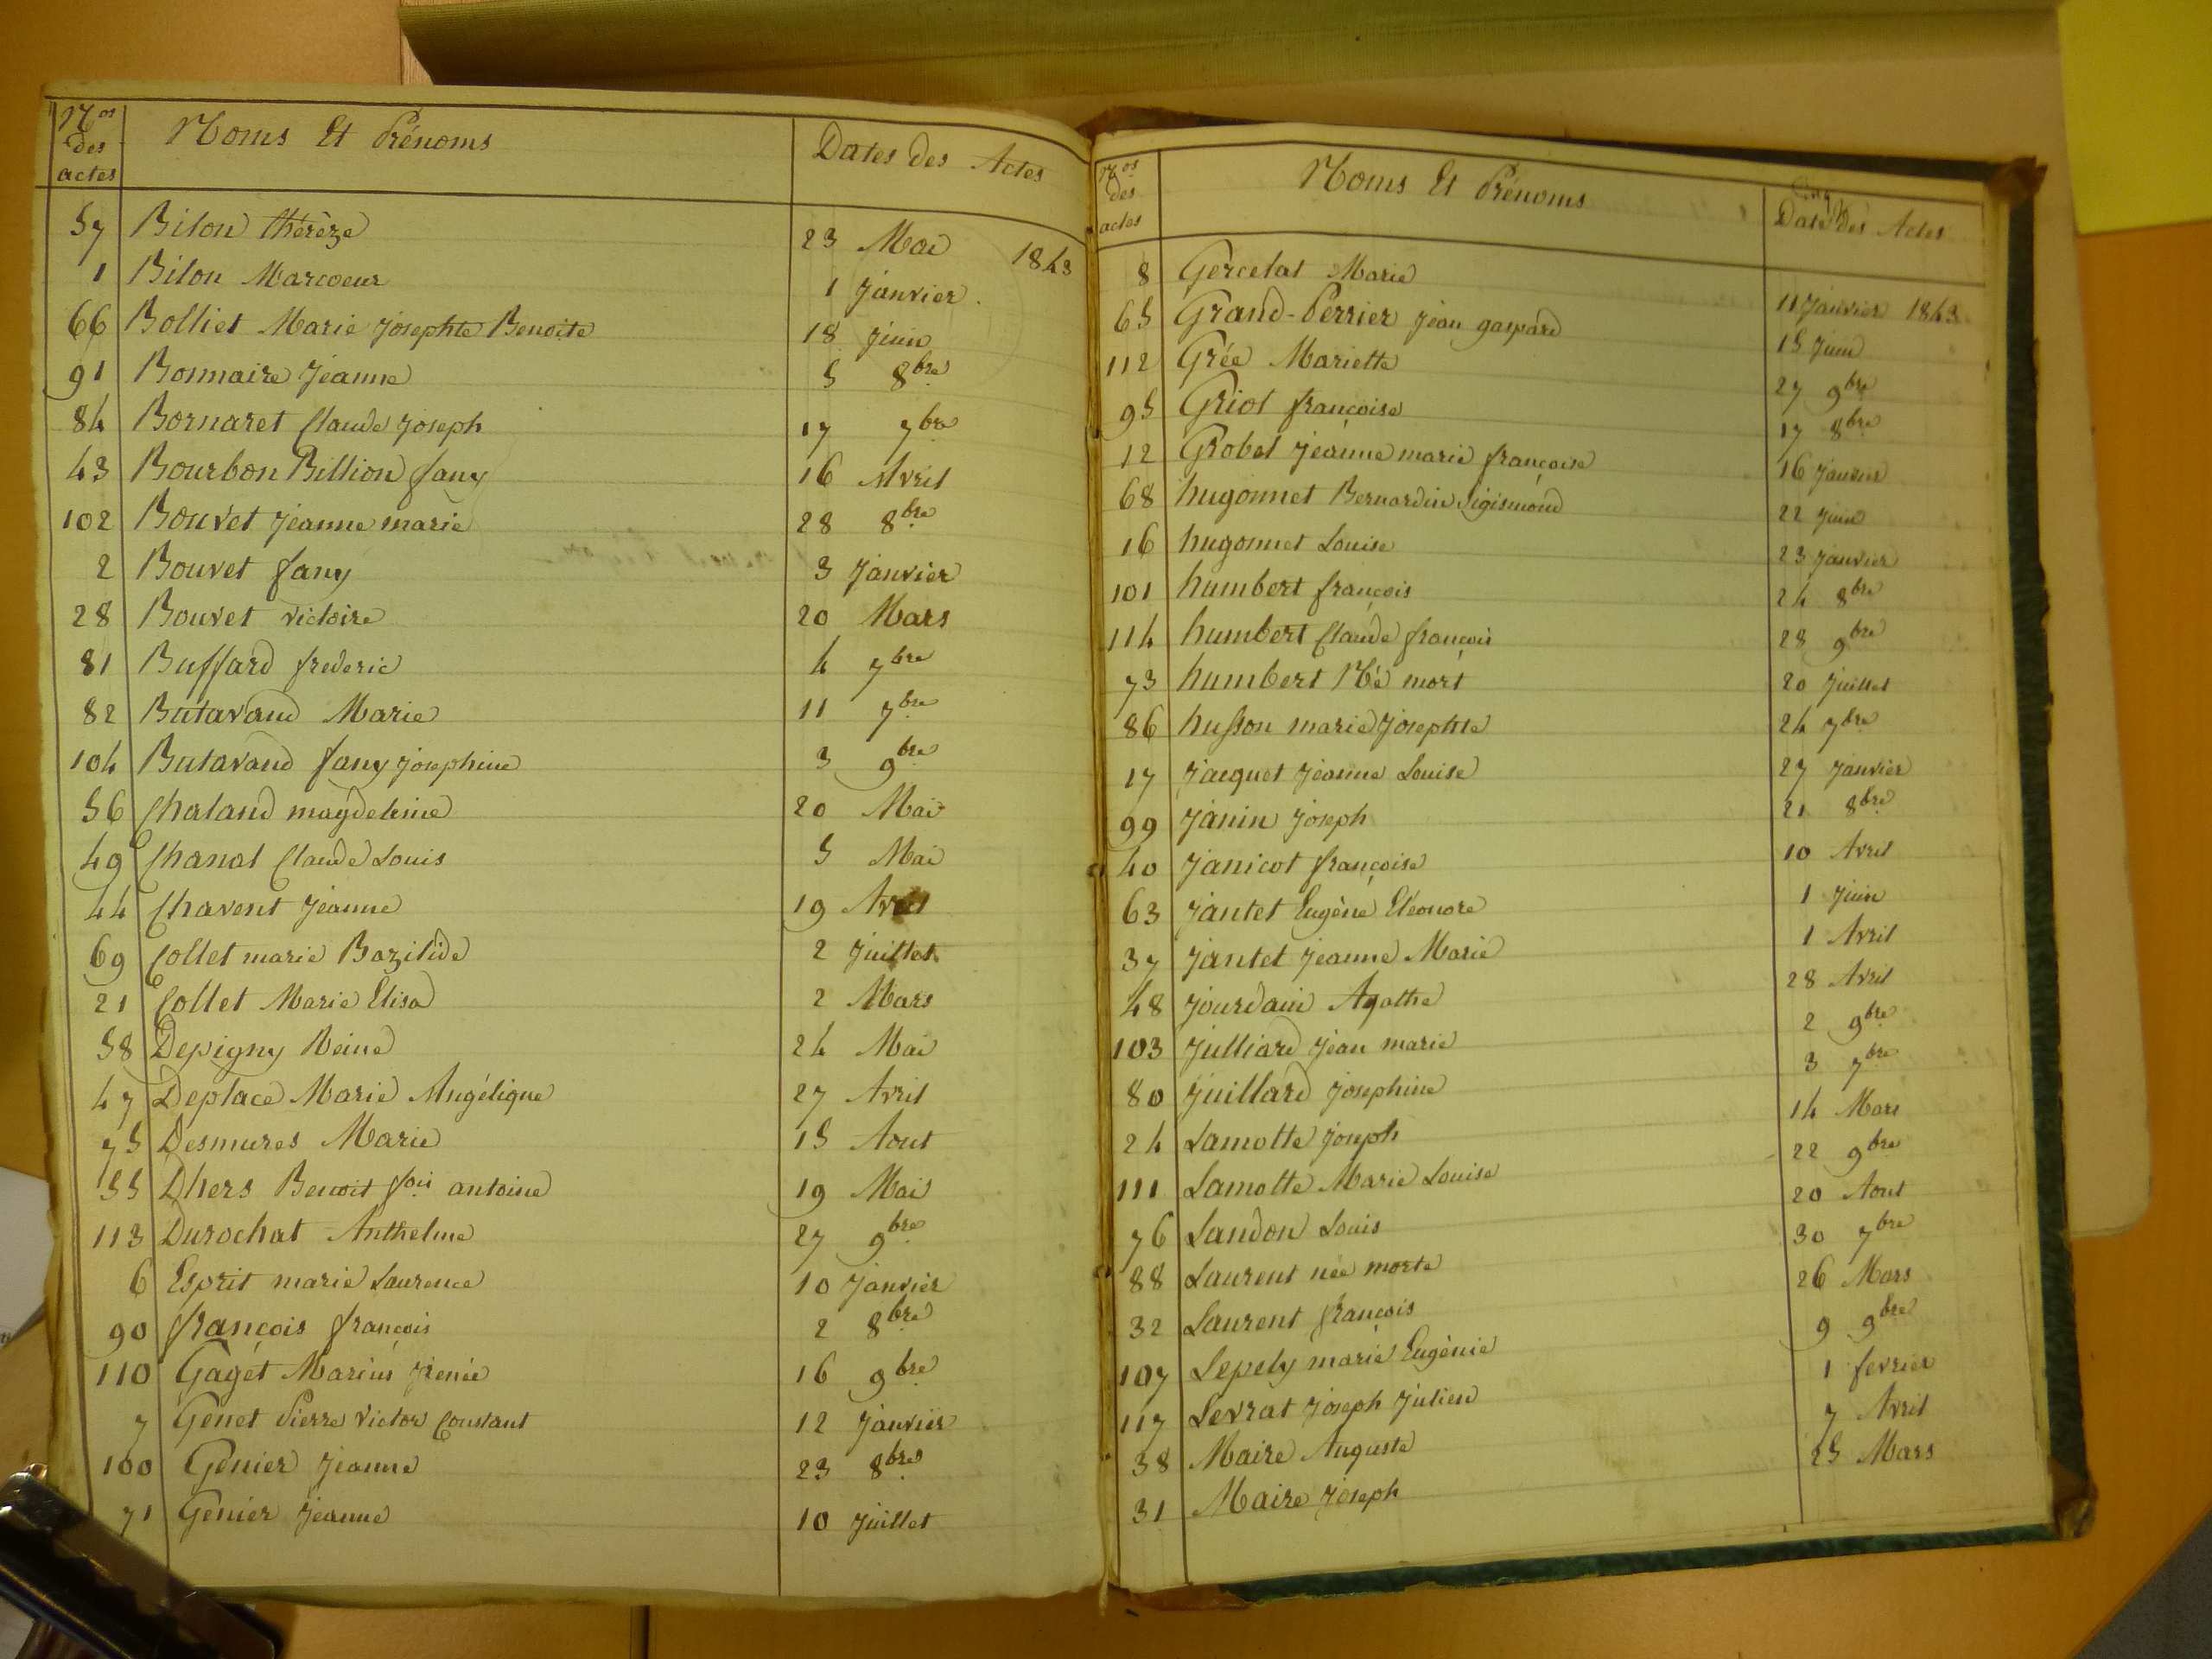 Nos des actes Noms Et Prénoms Dates des Actes
57 Bilon thérèze 23 Mai 1843
1 Bilon Marcoeur 1 janvier
66 Bolliet Marie josephte Benoite 18 juin
91 Bonnaire jeanne 5 8bre
84 Bornaret Claude joseph 17 7bre
43 Bourbon Billion fany 16 Avril
102 Bouvet jeanne marie 28 8bre
2 Bouvet fany 3 janvier
28 Bouvet victoire 20 Mars
81 Buffard frederic 4 7bre
82 Butavand Marie 11 7bre
104 Butavand fany josephine 3 9bre
56 Chaland magdeleine 20 Mai
49 Chanal Claude Louis 5 Mai
44 Chavent jeanne 19 Avril
69 Collet marie Bazilide 2 juillet
21 Collet Marie Elisa 2 Mars
58 Depigny Reine 24 Mai
47 Deplace Marie Angélique 27 Avril
75 Desmures Marie 15 Aout
55 Dhers Benoit fois antoine 19 Mai
113 Durochat Anthelme 27 9bre
6 Esprit marie Laurence 10 janvier
90 françois françois 2 8bre
110 Gaget Marius jrenée 16 9bre
7 Genet Pierre Victor Constant 12 janvier
100 Genier jeanne 23 8bre
71 Genier jeanne 10 juillet
Nos des actes Noms Et Prénoms Date des Actes
8 Gercelat Marie 11 janvier 1843
65 Grand-Perrier jean gaspard 15 juin
112 Grée Mariette 27 9bre
95 Griot françoise 17 8bre
12 Grobel jeanne marie françoise 16 janvier
68 hugonnet Bernardin Sigismond 22 juin
16 hugonnet Louise 23 janvier
101 humbert françois 24 8bre
114 humbert Claude françois 28 9bre
73 humbert Né mort 20 juillet
86 husson marie josephte 24 7bre
17 jacquet jeanne Louise 27 janvier
99 janin joseph 21 8bre
40 janicot françoise 10 Avril
63 jantet Eugène Eléonore 1 juin
37 jantet jeanne Marie 1 Avril
48 jourdain Agathe 28 Avril
103 julliard jean marie 2 9bre
80 juillard josephine 3 7bre
24 Lamotte joseph 14 Mars
111 Lamotte Marie Louise 22 9bre
76 Landon Louis 20 Aout
88 Laurent née morte 30 7bre
32 Laurent françois 26 Mars
107 Lepely marie Eugènie 9 9bre
117 Levrat joseph julien 1 fevrier
38 Maire Auguste 7 Avril
31 Maire joseph 25 Mars